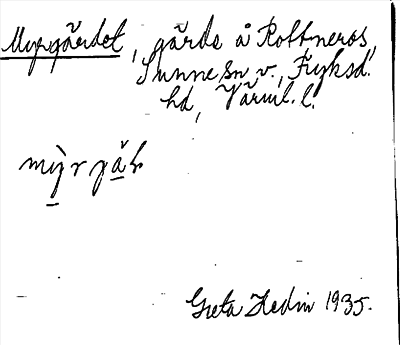 Myrgärdet, gärde å Rottneros,
Sunne sn v., Fryksd.
hd, Värml. l.
Greta Hedin 1935.